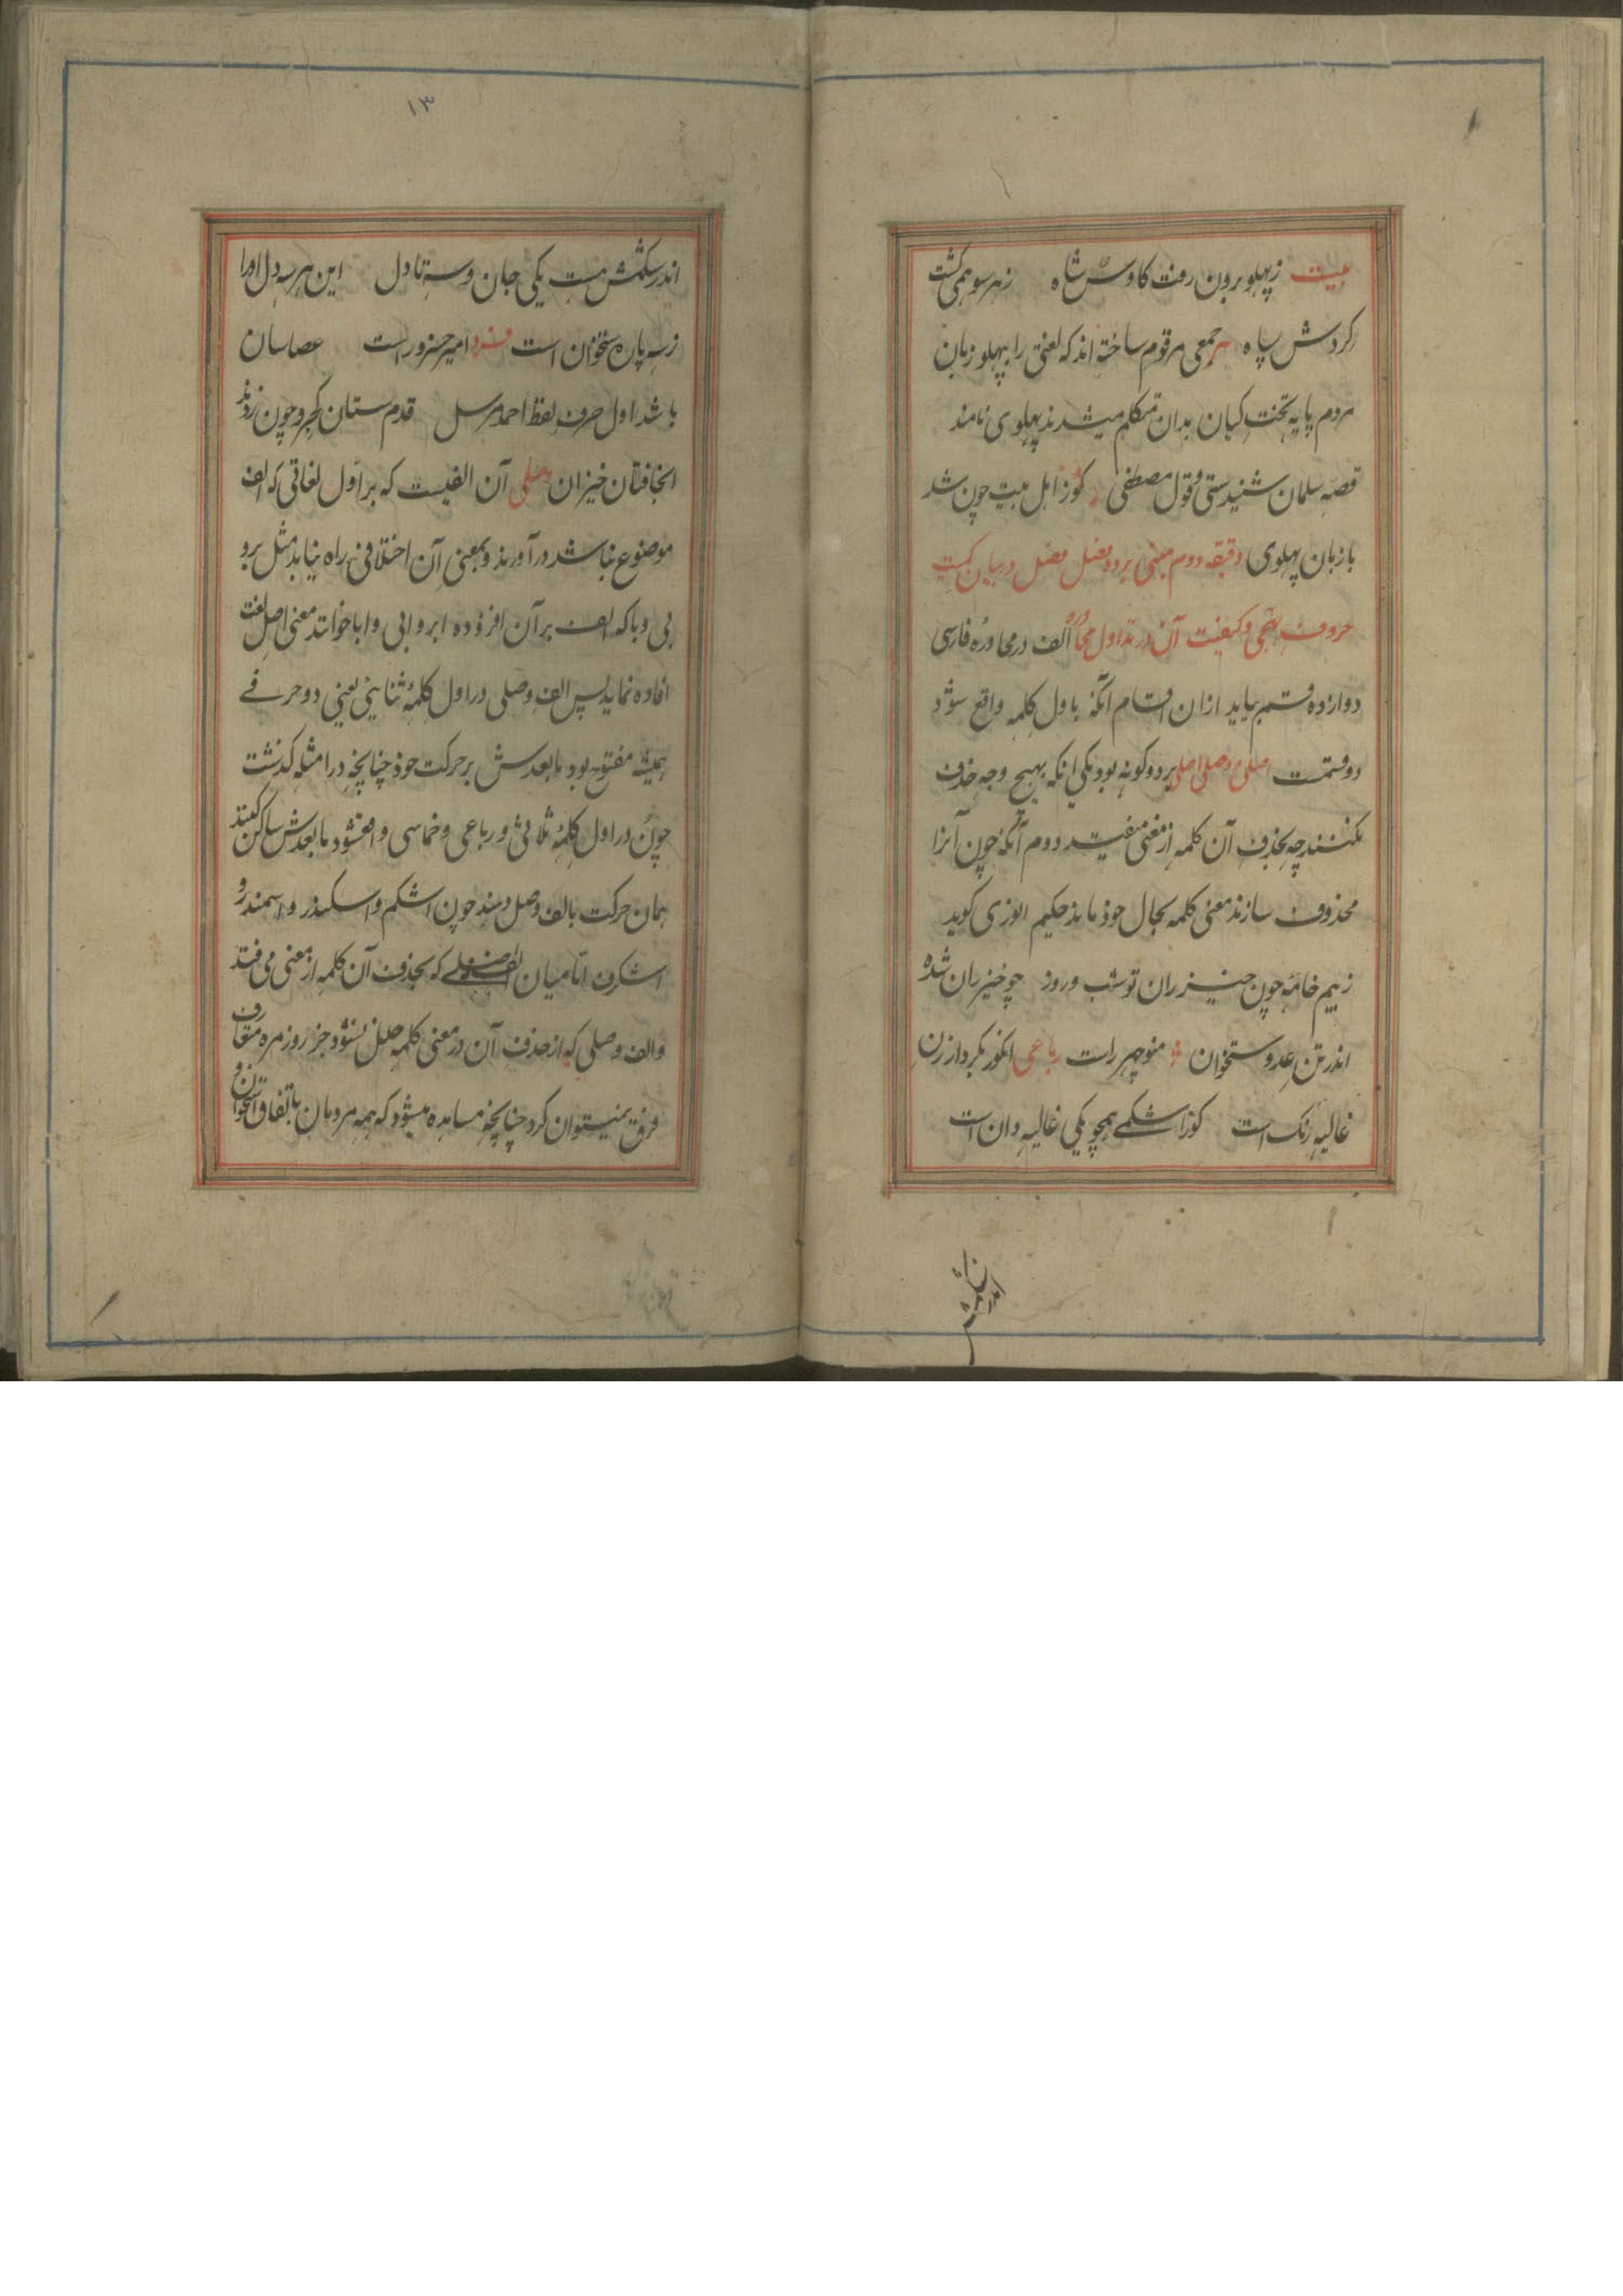 بیت زپهلو برون رفت کاوس شاه زهر سو همی کشت
کردش سپاه جمعی مرقوم ساخته اند که لغتی را پهلو زبان
مردم پایه تخت کیان بدان متکلم میشدند پهلوی نامند
قصه سلمان شنیدستی و قول مصطفی کوز اهل بیت چون شد
با زبان پهلوی دقیقه دوم مبتنی بر ده مفصل در بیان کمیت
حروف تهجی و کیفیت آن در تداول الف در محاوره فارسی
دوازده قسم بیاید ازان اقسام آنکه باول کلمه واقع شود
دو قسمت اصلی و وصلی اصلی بر دو کونه بود یکی انکه بهیچ وجه حذف
نکنند چه بحذف آن کلمه از معنی میفتد دوم آنکه چون آنرا
محذوف سازند معنی کلمه بحال خود ماند حکیم انوری کوید
زبیم خامه چون خیزران تو شب و روز چو خیزران شده
اندر تن عدو ستخوان منوچهر راست رباعی انکور بکردار زن
غالیه رنک است کورا شکمی همچو یکی غالیه دان است
۱۳
اندر شکمش هست یکی جان و سه تا دل این هر سه دل اورا
ز سه پاره ستخوان است فرد امیر خسرو راست عصاسان
باشد اول حرف لفظ احمد مرسل قدم ستان کجرو چون زدند
افتان خیزان وصلی آن الفیست که بر اول لغاتی که الف
موضوع نباشد در آورند و بمعنی آن اختلافی راه نیابد مثل برو
بی و با که الف بر آن افزوده ابرو ابی و ابا خوانند معنی اصل لغت
افاده نماید پس الف وصلی در اول کلمهٔ ثنایی یعنی دو حرفی
همیشه مفتوح بود مابعدش بر حرکت خود چنانچه در امثله کذشت
چون در اول کلمهٔ ثلاثی و رباعی و خماسی واقع شود مابعدش ساکن کنند
همان حرکت بالف وصل دهند چون اشکم و اسکندر و اسمندرو
اشکرف اما میان که بحذف آن کلمه از معنی می فتد
والف وصلی که از حذف آن در معنی کلمه خلل نشود جز روزمره متعارف
فرق نمیتوان کرد چنانچه مشاهده میشود که همه مردمان باتفاق استخوان